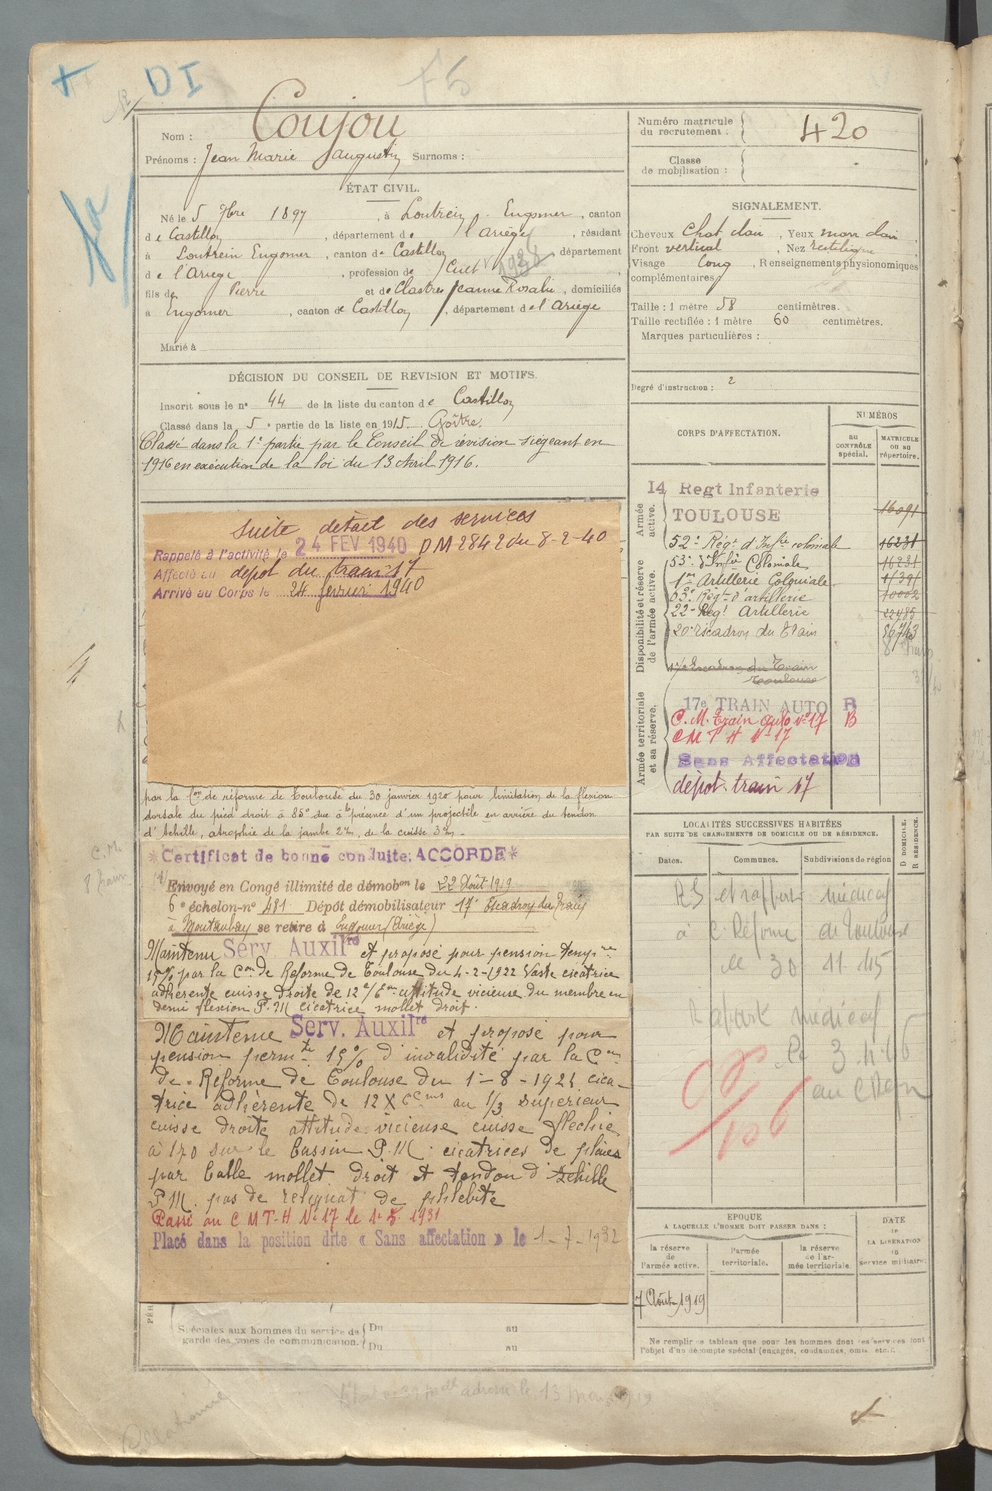 DI
Nom : Coujou
Prénoms : Jean Marie Augustin Surnoms :
ÉTAT CIVIL.
Né le 5 7bre 1897, à Loutrein - Engomer, canton
de Castillon, département de l'Ariège, résidant
à Loutrein Engomer, canton de Castillon département
de l'Ariège, profession de
fils de Pierre et de Clastres Jeanne Rosalie, domiciliés
à Engomer, canton de Castillon, département de l'Ariège
Marié à
DÉCISION DU CONSEIL DE REVISION ET MOTIFS.
Inscrit sous le n° 44 de la liste du canton de Castillon
Classé dans la 5e partie de la liste en 1915 Goître.
Classé dans la 1e partie par le Conseil de révision siégeant en
1916 en exécution de la loi du 13 Avril 1916.
Suite détail des services
Rappelé à l'activité le 24 FEV 1940 DM 2842 du 8-2-40
Affecté au dépot du train 17
Arrivé au Corps le 24 fevrier 1940
par la Con de réforme de Toulouse du 30 janvier 1920 pour limitation de la flexion
dorsale du pied droit à 85° due à la présence d'un projectile en arrière du tendon
d'Achille, atrophie de la jambe 2%, de la cuisse 3%.
*Certificat de bonne conduite: ACCORDÉ*
Envoyé en Congé illimité de démobon le 22 Août 1919
6e échelon-n° 481 Dépôt démobilisateur 17e Escadron du Train
à Montauban se retire à Engomer (Ariège)
Maintenu Serv. Auxilre et proposé pour pension tempre
15% par la Con de Reforme de Toulouse du 4-2-1922 Vaste cicatrice
adhérente cuisse droite de 12 attitude vicieuse du membre en
demi flexion P.M cicatrice mollet droit.
Maintenu Serv. Auxilre et proposé pour
pension permte 15% d'invalidité par la Con
de Reforme de Toulouse du 1-8-1924 cica-
trice adhérente de 12 X au 1/3 superieur
cuisse droite attitude vicieuse cuisse flechie
à 170 sur le bassin P.M. cicatrices de plaies
par balle mollet droit et tendon d'Achille
P.M. pas de reliquat de phlebite
Passé au C M T-H N° 17 le 1-5-1931
Placé dans la position dite « Sans affectation » le 1-7-1932
Spéciales aux hommes du service de garde des voies de communication. Du au
Du au
Numéro matricule du recrutement : 420
Classe de mobilisation :
SIGNALEMENT.
Cheveux chat clair, Yeux mar clair
Front vertical, Nez rectiligne
Visage long, Renseignements physionomiques
complémentaires
Taille : 1 mètre 58 centimètres.
Taille rectifiée : 1 mètre 60 centimètres.
Marques particulières :
Degré d'instruction : 2
CORPS D'AFFECTATION.
NUMÉROS
AU CONTRÔLE spécial.
MATRICULE OU AU répertoire.
Armée active.
14 Regt Infanterie
TOULOUSE
52e Régt d'Infie coloniale 16231
Disponibilité et réserve de l'armée active.
53e d'Infie Coloniale 16231
1er Artillerie Coloniale
Régt d'artillerie
22e Regt Artillerie 22485
20e Escadron du Train
17e Escadron du Train
Toulouse
Armée territoriale et sa réserve.
17e TRAIN AUTO R
C.M. Train auto n° 17 B
C M T H N° 17
Sans Affectation
dépot train 17
LOCALITÉS SUCCESSIVES HABITÉES
PAR SUITE DE CHANGEMENTS DE DOMICILE OU DE RÉSIDENCE.
Dates.
Communes.
Subdivisions de région
D DOMICILE. R RÉSIDENCE.
RS et rapport médical
à C. Réforme de Toulouse
le 30 11 45
Rapport médical
le 3 4 46
ÉPOQUE
A LAQUELLE L'HOMME DOIT PASSER DANS :
DATE de LA LIBÉRATION du service militaire.
la réserve de l'armée active.
l'armée territoriale.
la réserve de l'armée territoriale.
7 Août 1919
Ne remplir ce tableau que pour les hommes dont les services font
l'objet d'un décompte spécial (engagés, condamnés, omis, etc.).